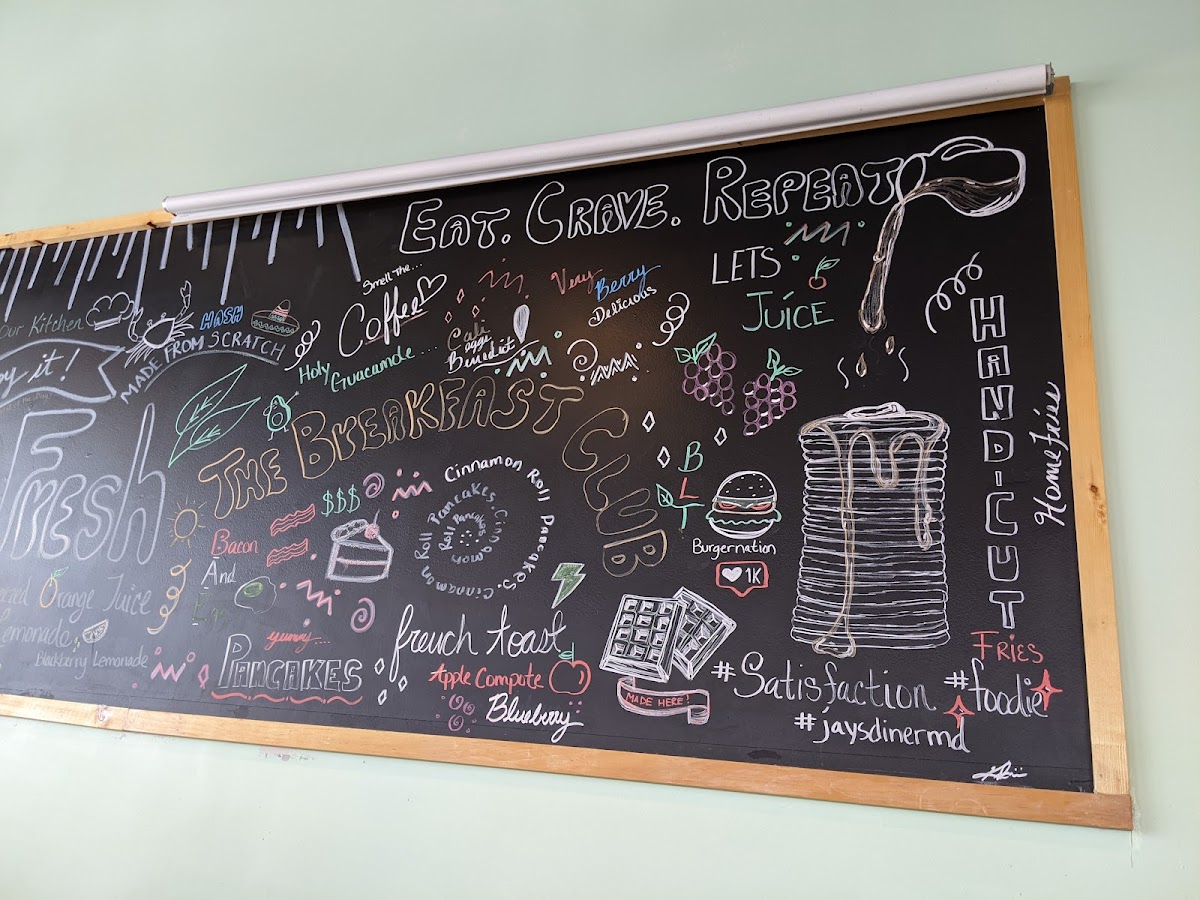 EAT. CRAVE. REPEAT
Our Kitchen
HASH
MADE FROM SCRATCH
y it!
Fresh
Orange Juice
Lemonade
Blackberry Lemonade
Smell The...
Coffee
Holy
Guacamole....
Cali
Eggs
Benedict
Very
Berry
Delicious
LETS
JUICE
THE BREAKFAST CLUB
$$$
Bacon
And
Egg
yummy...
PANCAKES
Cinnamon Roll Pancakes. Cinnamon Roll Pancakes. Cinnamon Roll Pancakes
french toast
Apple Compute
Blueberry
BLT
Burgernation
1K
MADE HERE!
HANDICUT
Home Fries
FRIES
#Satisfaction
#foodie
#jaysdinermd